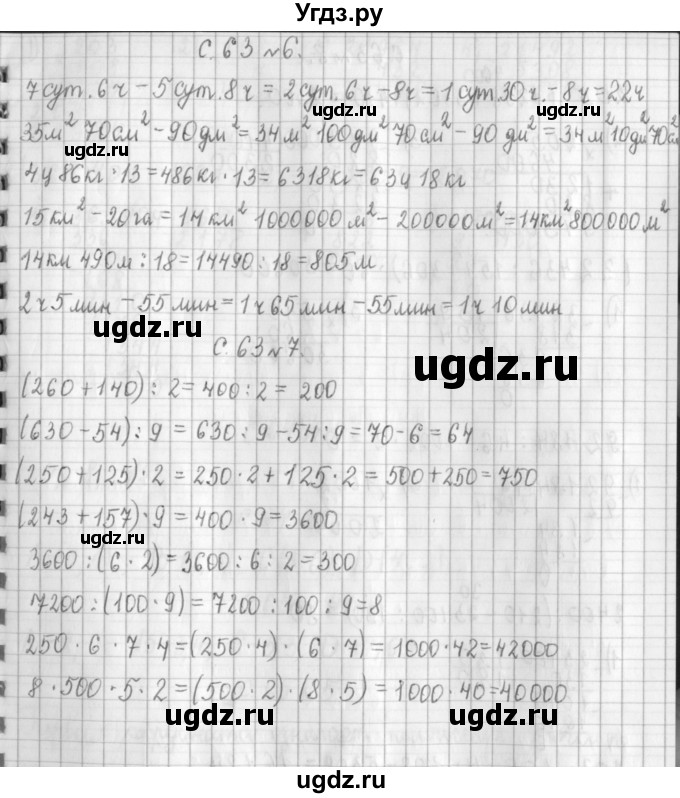 Угдз.ру
С. 63 №6.
7 сут. 6 ч – 5 сут. 8 ч = 2 сут. 6 ч – 8 ч = 1 сут. 30 ч. – 8 ч = 22 ч
35 м² 70 см² – 90 дм² = 34 м² 100 дм² 70 см² – 90 дм² = 34 м² 10 дм² 70 см²
4 ц 86 кг · 13 = 486 кг · 13 = 6318 кг = 63 ц 18 кг
15 км² – 20 га = 14 км² 1000000 м² – 200000 м² = 14 км² 800000 м²
14 км 490 м : 18 = 14490 : 18 = 805 м
2 ч 5 мин – 55 мин = 1 ч 65 мин – 55 мин = 1 ч 10 мин
С. 63 №7.
(260 + 140) : 2 = 400 : 2 = 200
(630 – 54) : 9 = 630 : 9 – 54 : 9 = 70 – 6 = 64
(250 + 125) · 2 = 250 · 2 + 125 · 2 = 500 + 250 = 750
(243 + 157) · 9 = 400 · 9 = 3600
3600 : (6 · 2) = 3600 : 6 : 2 = 300
7200 : (100 · 9) = 7200 : 100 : 9 = 8
250 · 6 · 7 · 4 = (250 · 4) · (6 · 7) = 1000 · 42 = 42000
8 · 500 · 5 · 2 = (500 · 2) · (8 · 5) = 1000 · 40 = 40000
ugdz.ru
ugdz.ru
ugdz.ru
ugdz.ru
ugdz.ru
ugdz.ru
ugdz.ru
ugdz.ru
ugdz.ru
ugdz.ru